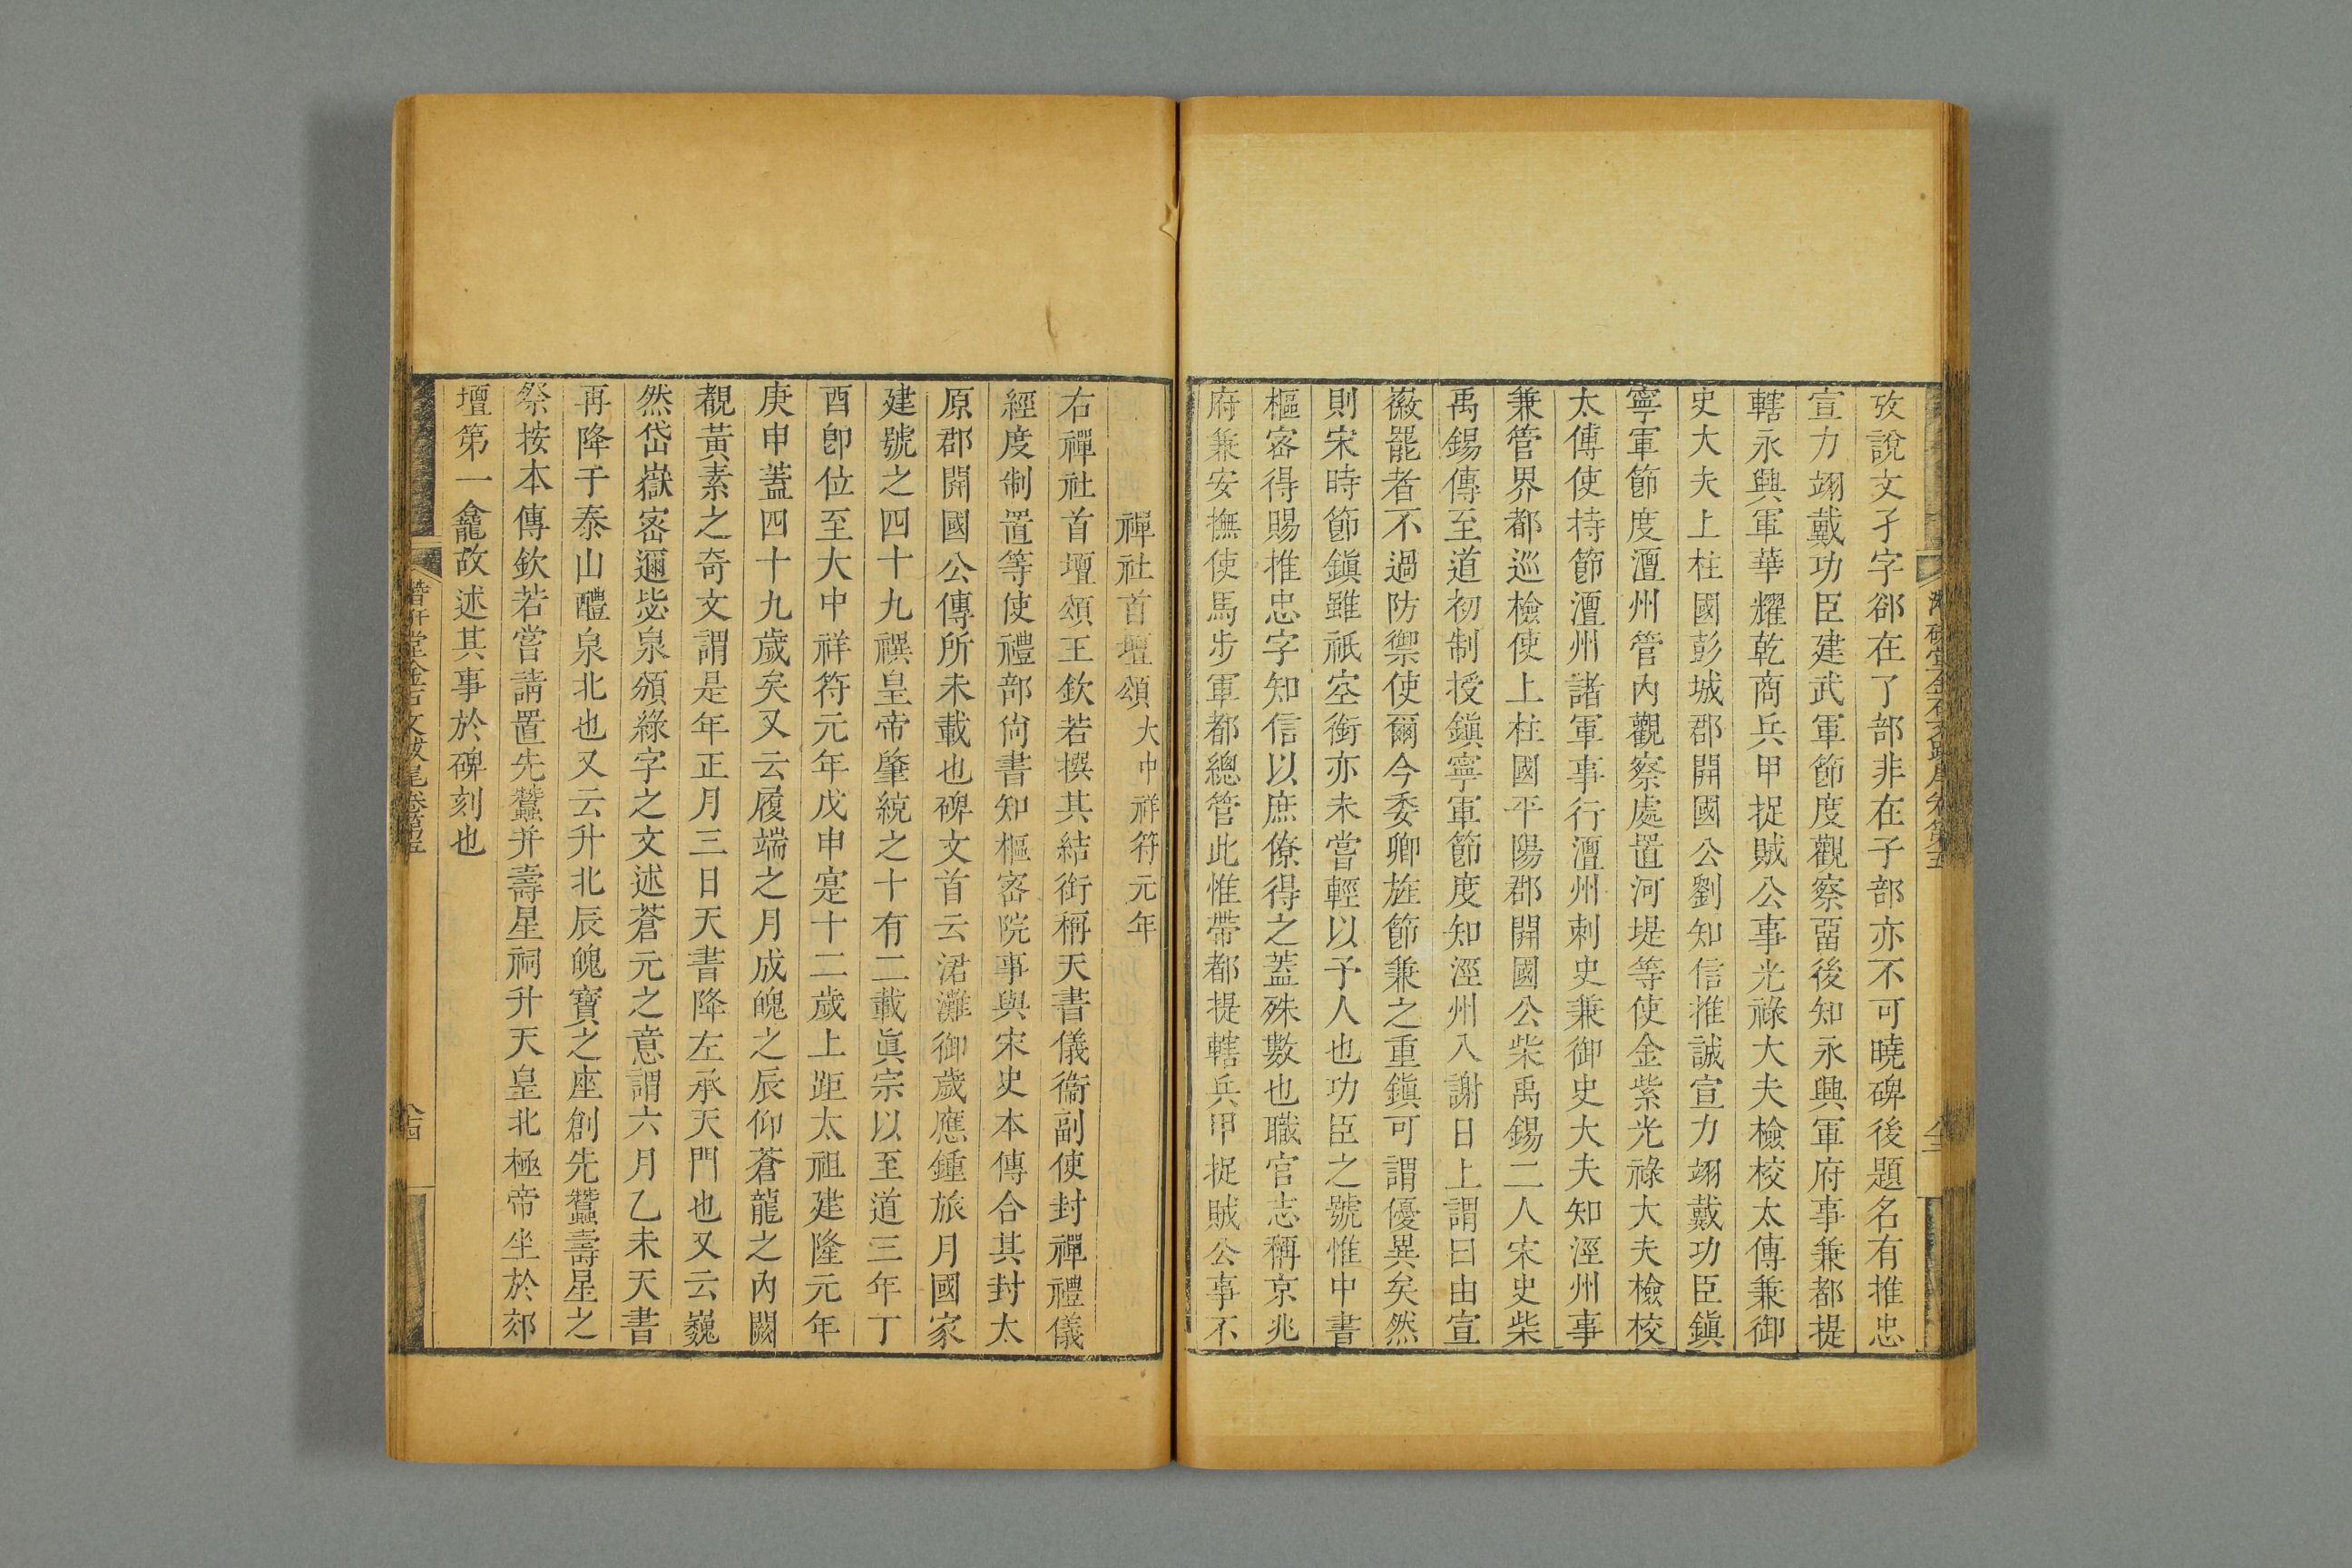 攷說文孑字卻在了部非在子部亦不可曉碑後題名有推忠
宣力翊戴功臣建武軍節度觀察畱後知永興軍府事兼都提
轄永興軍華耀乾商兵甲捉賊公事光祿大夫檢校太傅兼御
史大夫上柱國彭城郡開國公劉知信推誠宣力翊戴功臣鎭
寧軍節度澶州管內觀察處置河堤等使金紫光祿大夫檢校
太傅使持節澶州諸軍事行澶州刺史兼御史大夫知涇州事
兼管界都巡檢使上柱國平陽郡開國公柴禹錫二人宋史柴
禹錫傳至道初制授鎭寧軍節度知涇州入謝日上謂曰由宣
徽罷者不過防禦使爾今委卿旌節兼之重鎭可謂優異矣然
則宋時節鎭雖祇空銜亦未嘗輕以予人也功臣之號惟中書
樞密得賜推忠字知信以庶僚得之蓋殊數也職官志稱京兆
府兼安撫使馬步軍都總管此惟帶都提轄兵甲捉賊公事不
禪社首壇頌大中祥符元年
右禪社首壇頌王欽若撰其結銜稱天書儀衞副使封禪禮儀
經度制置等使禮部尙書知樞密院事與宋史本傳合其封太
原郡開國公傳所未載也碑文首云涒灘御歲應鍾旅月國家
建號之四十九禩皇帝肇統之十有二載眞宗以至道三年丁
酉卽位至大中祥符元年戊申寔十二歲上距太祖建隆元年
庚申蓋四十九歲矣又云履端之月成魄之辰仰蒼龍之內闕
覩黃素之奇文謂是年正月三日天書降左承天門也又云巍
然岱嶽密邇毖泉頒綠字之文述蒼元之意謂六月乙未天書
再降于泰山醴泉北也又云升北辰魄寶之座創先蠶壽星之
祭按本傳欽若嘗請置先蠶并壽星祠升天皇北極帝坐於郊
壇第一龕故述其事於碑刻也
堂金石文跋尾卷第五